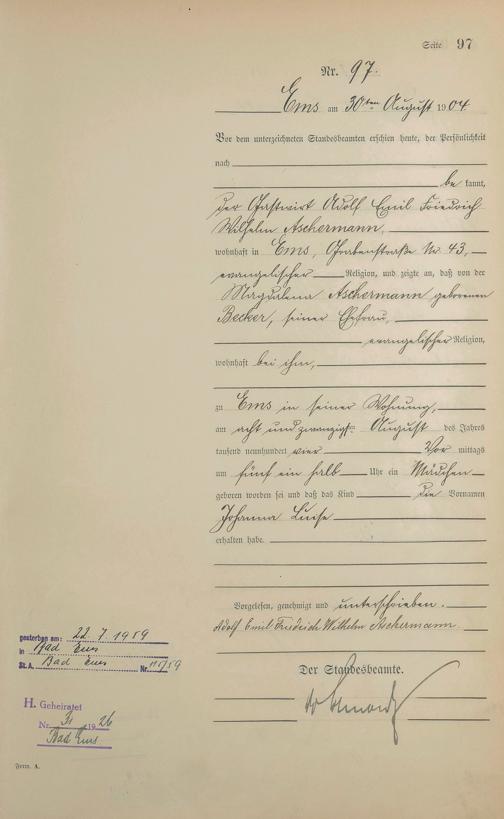 Seite 97
Nr. 97.
Ems am 30ten August 1904
Vor dem unterzeichneten Standesbeamten erschien heute, der Persönlichkeit
nach
be kannt,
der Gastwirt Adolf Emil Friedrich
Wilhelm Aschermann,
wohnhaft in Ems, Grabenstraße Nr 43,
evangelischer Religion, und zeigte an, daß von der
Magdalena Aschermann geborenen
Becker, seiner Ehefrau,
evangelischer Religion,
wohnhaft bei ihm,
zu Ems in seiner Wohnung,
am acht und zwanzigsten August des Jahres
tausend neunhundert vier Vor mittags
um fünf ein halb Uhr ein Mädchen
geboren worden sei und daß das Kind die Vornamen
Johanna Luise
erhalten habe.
Vorgelesen, genehmigt und unterschrieben.
Adolf Emil Friedrich Wilhelm Aschermann
Der Standesbeamte.
gestorben am: 22 7 1959
in Bad Ems
St.A. Bad Ems Nr. 115/59
H. Geheiratet
Nr. 31 1926
Bad Ems
Form. A.